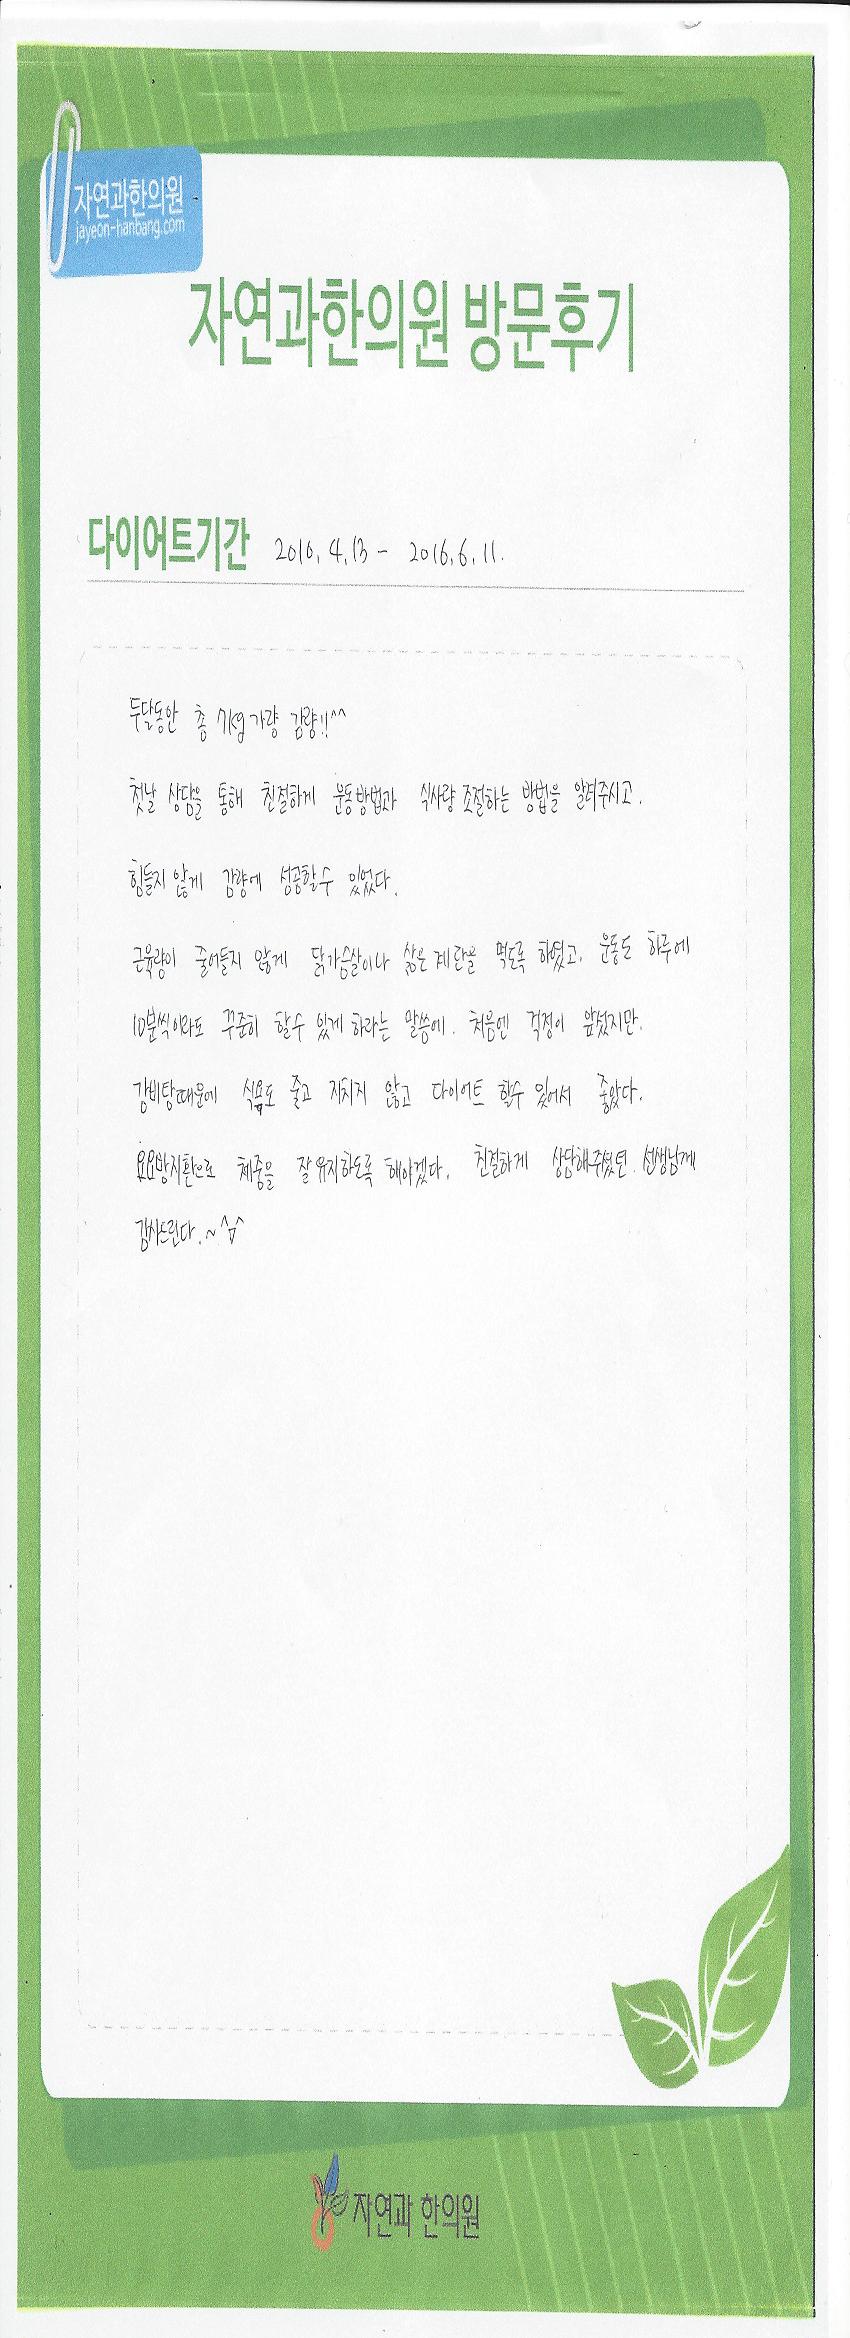 자연과한의원
jayeon-hanbang.com
자연과한의원 방문후기
다이어트기간 2016. 4. 13 - 2016. 6. 11.
두달동안 총 7kg가량 감량!!^^
첫날 상담을 통해 친절하게 운동방법과 식사량 조절하는 방법을 알려주시고.
힘들지 않게 감량에 성공할수 있었다.
근육량이 줄어들지 않게 닭가슴살이나 삶은 계란을 먹도록 하였고. 운동도 하루에
10분씩이라도 꾸준히 할수 있게 하라는 말씀에. 처음엔 걱정이 앞섰지만.
감비탕때문에 식욕도 줄고 지치지 않고 다이어트 할수 있어서 좋았다.
요요방지환으로 체중을 잘 유지하도록 해야겠다. 친절하게 상담해주셨던. 선생님께
감사드린다.~^^
자연과 한의원